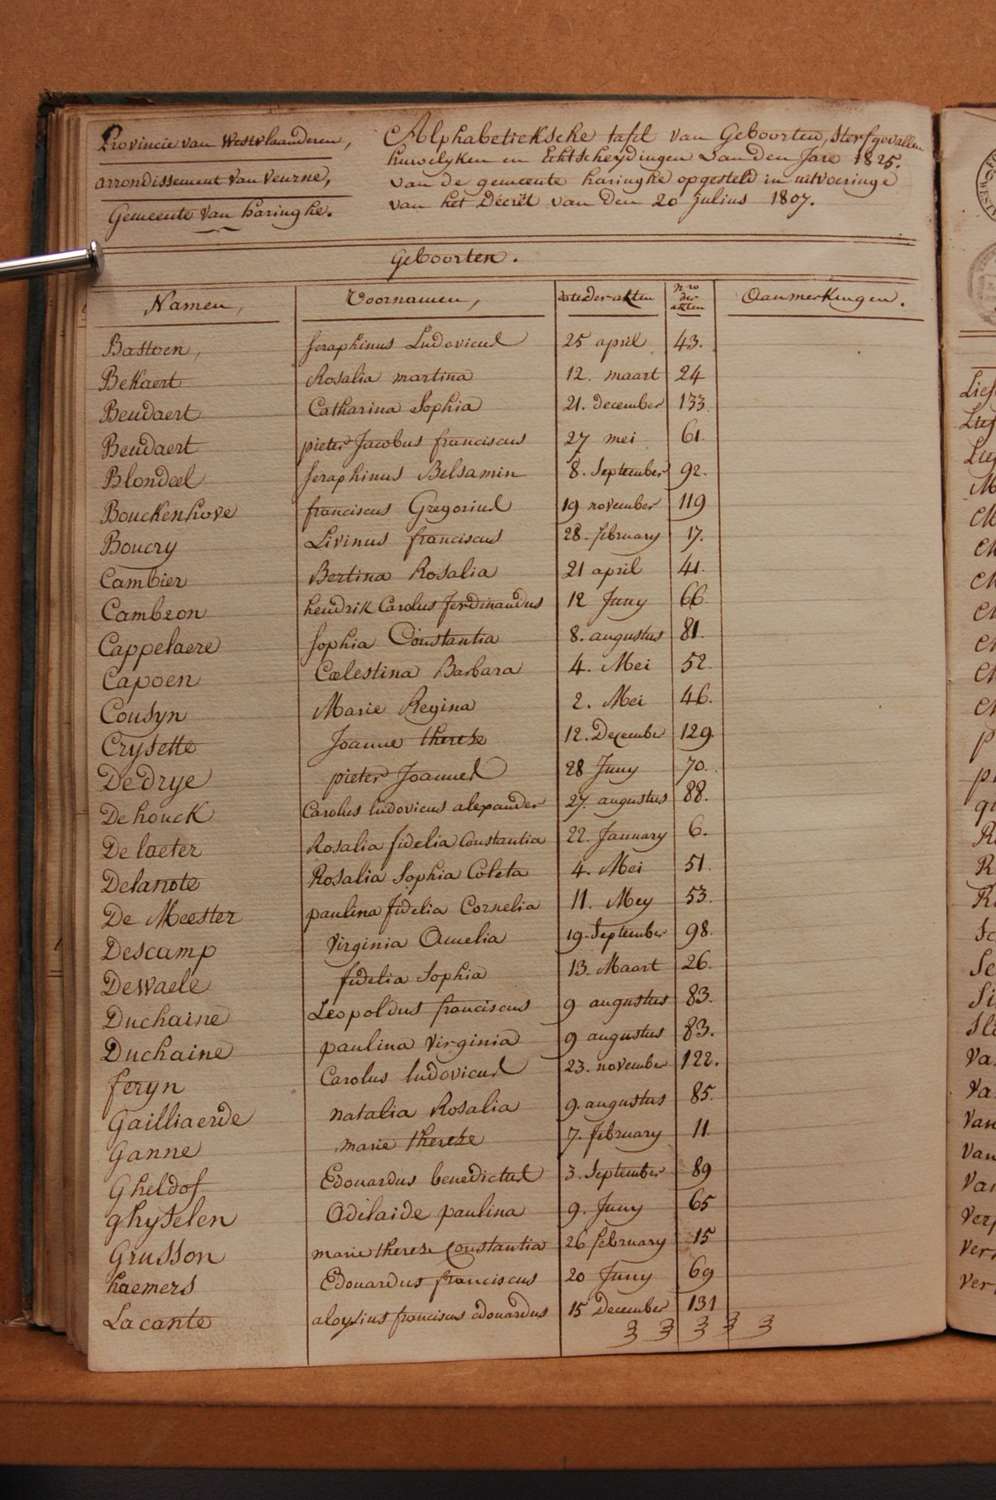 Provincie van Westvlaanderen,
arrondissement van veurne,
Gemeente van haringhe.
Alphabetieksche tafel van Geboorten, sterfgevallen
huwelyken en Echtscheydingen van den Jare 1825.
van de gemeente haringhe opgesteld in uitvoeringe
van het Décrèt van den 20 Julius 1807.
Geboorten.
Namen, Voornamen, date der akten nro der akten Aanmerkingen.
Bastoen, seraphinus Ludovicus 25 april 43.
Bekaert Rosalia martina 12. maart 24
Beudaert Catharina Sophia 21. december 133
Beudaert pieter Jacobus franciscus 27 mei 61.
Blondeel seraphinus Belsamin 8. September 92.
Bouckenhove franciscus Gregorius 19 november 119
Boucry Livinus franciscus 28. february 17.
Cambier Bertina Rosalia 21 april 41.
Cambron hendrik Carolus ferdinandus 12 Juny 66.
Cappelaere sophia Constantia 8. augustus 81.
Capoen Cælestina Barbara 4. Mei 52.
Cousyn Marie Regina 2. Mei 46.
Crysette Joanne therese 12. December 129.
De drye pieter Joannes 28 Juny 70.
De houck Carolus ludovicus alexander 27. augustus 88.
De laeter Rosalia fidelia Constantia 22. January 6.
Delanote Rosalia Sophia Coleta 4. Mei 51.
De Meester paulina fidelia Cornelia 11. Mey 53.
Descamp Virginia Amelia 19. September 98.
Dewaele fidelia Sophia 13. Maart 26.
Duchaine Leopoldus franciscus 9 augustus 83.
Duchaine paulina Virginia 9 augustus 83.
feryn Carolus ludovicus 23. november 122.
Gailliaerde natalia Rosalia 9. augustus 85.
Ganne marie therese 7. february 11.
Gheldof Edouardus benedictus 3. September 89
ghyselen Adilaide paulina 9. Juny 65
Grusson marie therese Constantia 26 february 15
haemers Edouardus franciscus 20 Juny 69
Lacante aloysius franciscus edouardus 15 December 131